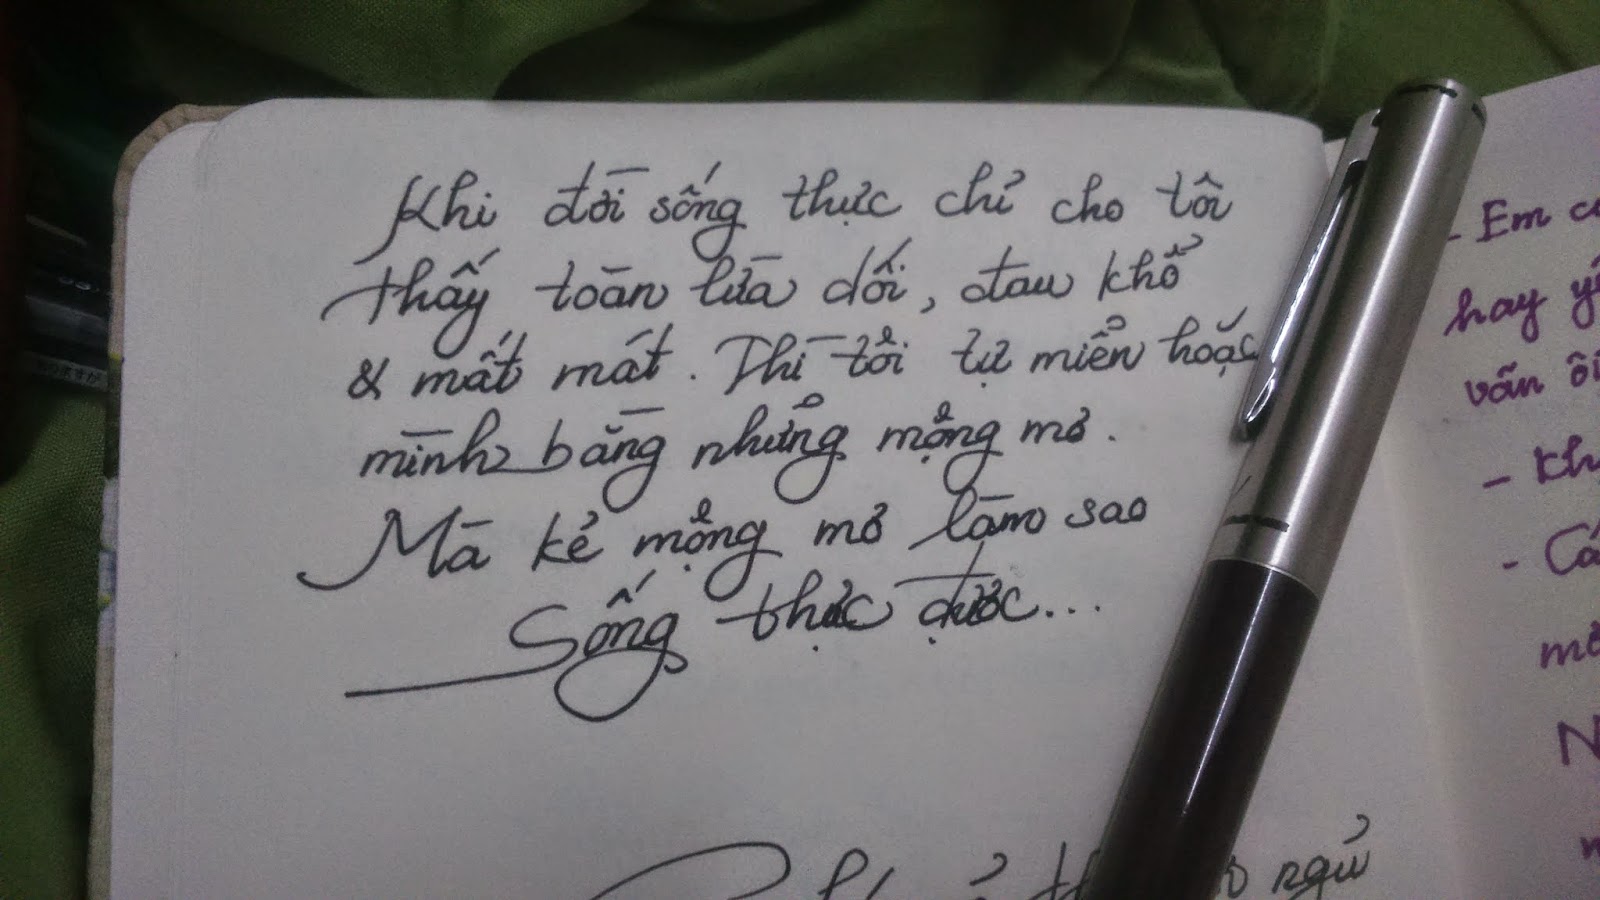 Khi đời sống thực chỉ cho tôi
thấy toàn lừa dối, đau khổ
& mất mát. Thì tôi tự miễn hoặc
mình bằng những mộng mơ.
Mà kẻ mộng mơ làm sao
sống thực được...
ngủ
- Em
hay
vẫn
-
- Cá